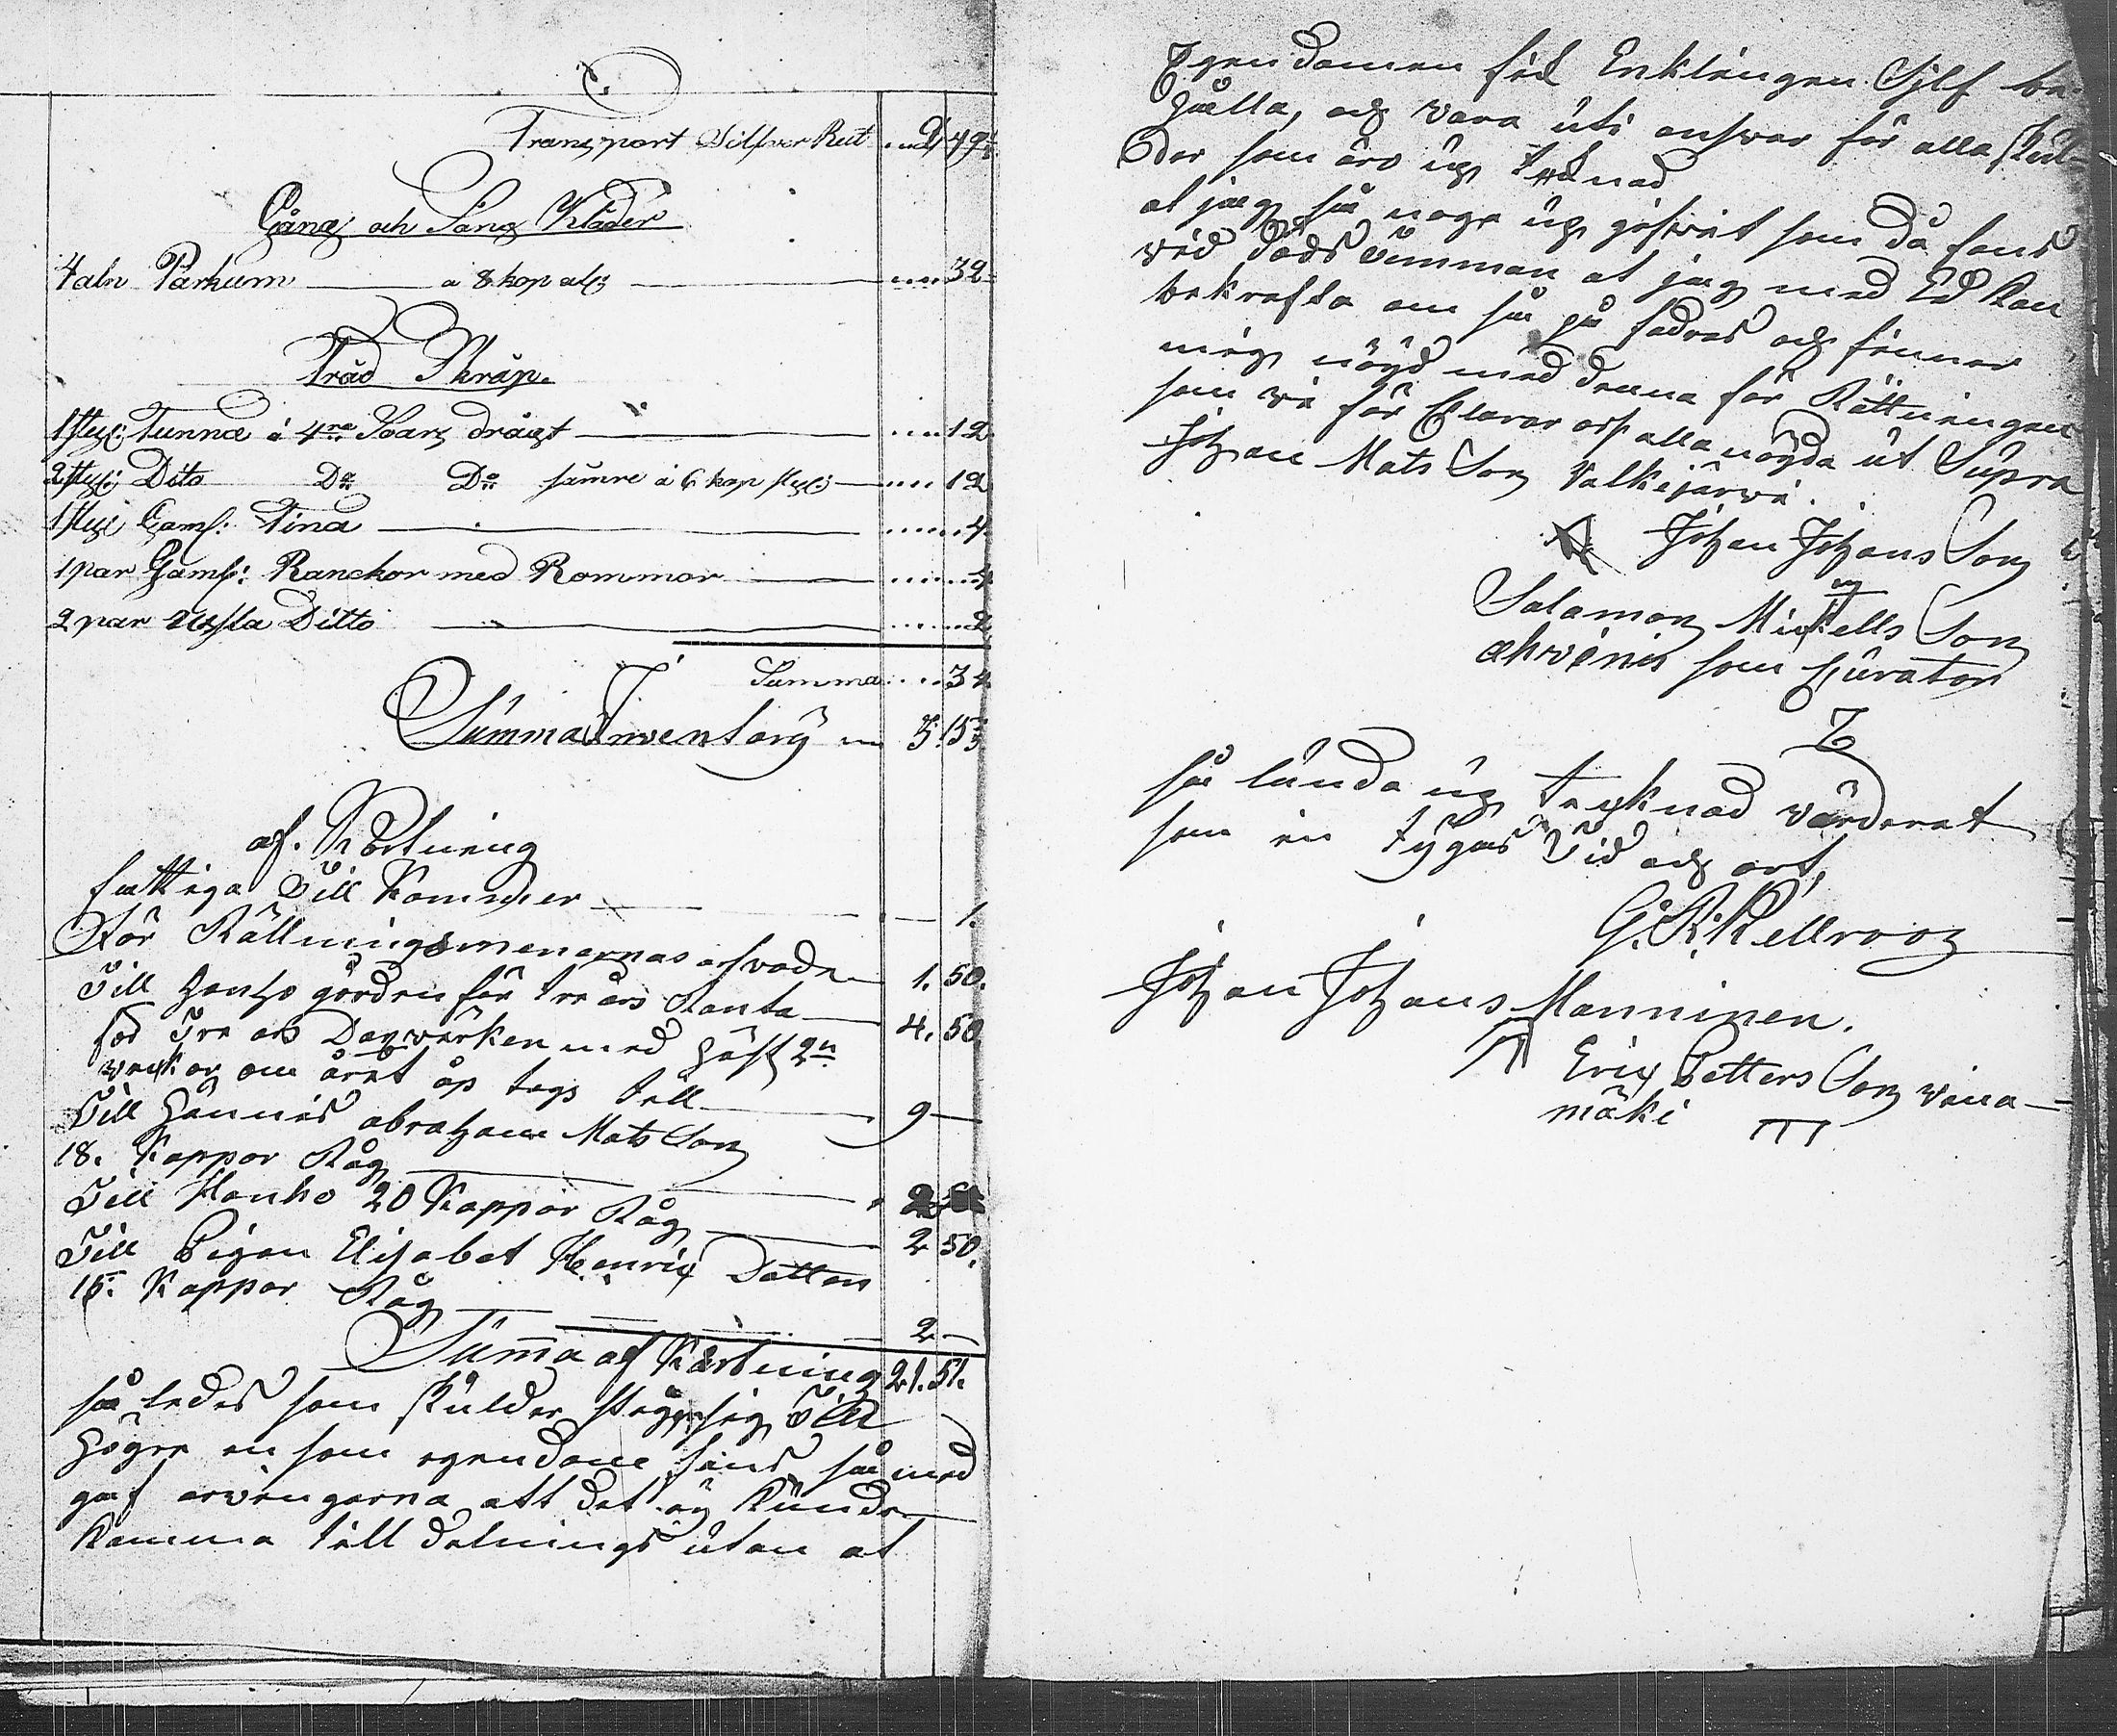 Transport Silfver Rub 4 49
Gång och Säng Kläder
4 aln Parkum a 8 kop aln 32
Träd Skräp
1 styc: Tunna á 4ra Kars drägt 12
2 styc: Dito Do Do sämre á 6 kop styc: 12
1 styc Gaml: Tina 4
1 par Gaml: Ranckor med Rommor 4
2 par Ditto 2
Summa 34
Summa Inventarÿ 5:15
af. Kortning
fattiga Till Kommer 1.
För Rättningsmenernas arfvode 1. 50.
Till Hanho gården för tre års Ranta 4. 50.
för Tre års Dagwärken med Häst 2n
veckor om året tags till 9 —
Till Hännis abraham Mats Son
18. Kappor Råg 2
Till Hanho 20 Kappor Råg 2 50.
Till Pigan Elisabet Henrix Dotter
16. Kappor Råg 2 —
Suma af Kårtning 21. 51.
så ledes som skulder steg sig Till
högre en som egendome fins så med
gaf arvingarna att det eÿ kunde
komma till delnings utan at
Egendomen fick Enklingen Sjelf be-
hålla, och vara uti answar för alla skul-
der som äro up teknad
at jag så noga up gifwit som då fans
wid döds timman at jag med Ed kan
bekrefta om så på fodras och finner
mig nögd med denna för Rättningen
som wi för Clarar oss alla nögda ut Supra
Johan Mats Son Valkejärwi.
Johan Johans Son
Salamon Mickells Son
ahwenis som Curator
så lunda up tecknad värderat
som in tÿgas Tid och ort,
G. R. Kellroos
Johan Johans Manninen.
Erix Petters Son vina-
mäki